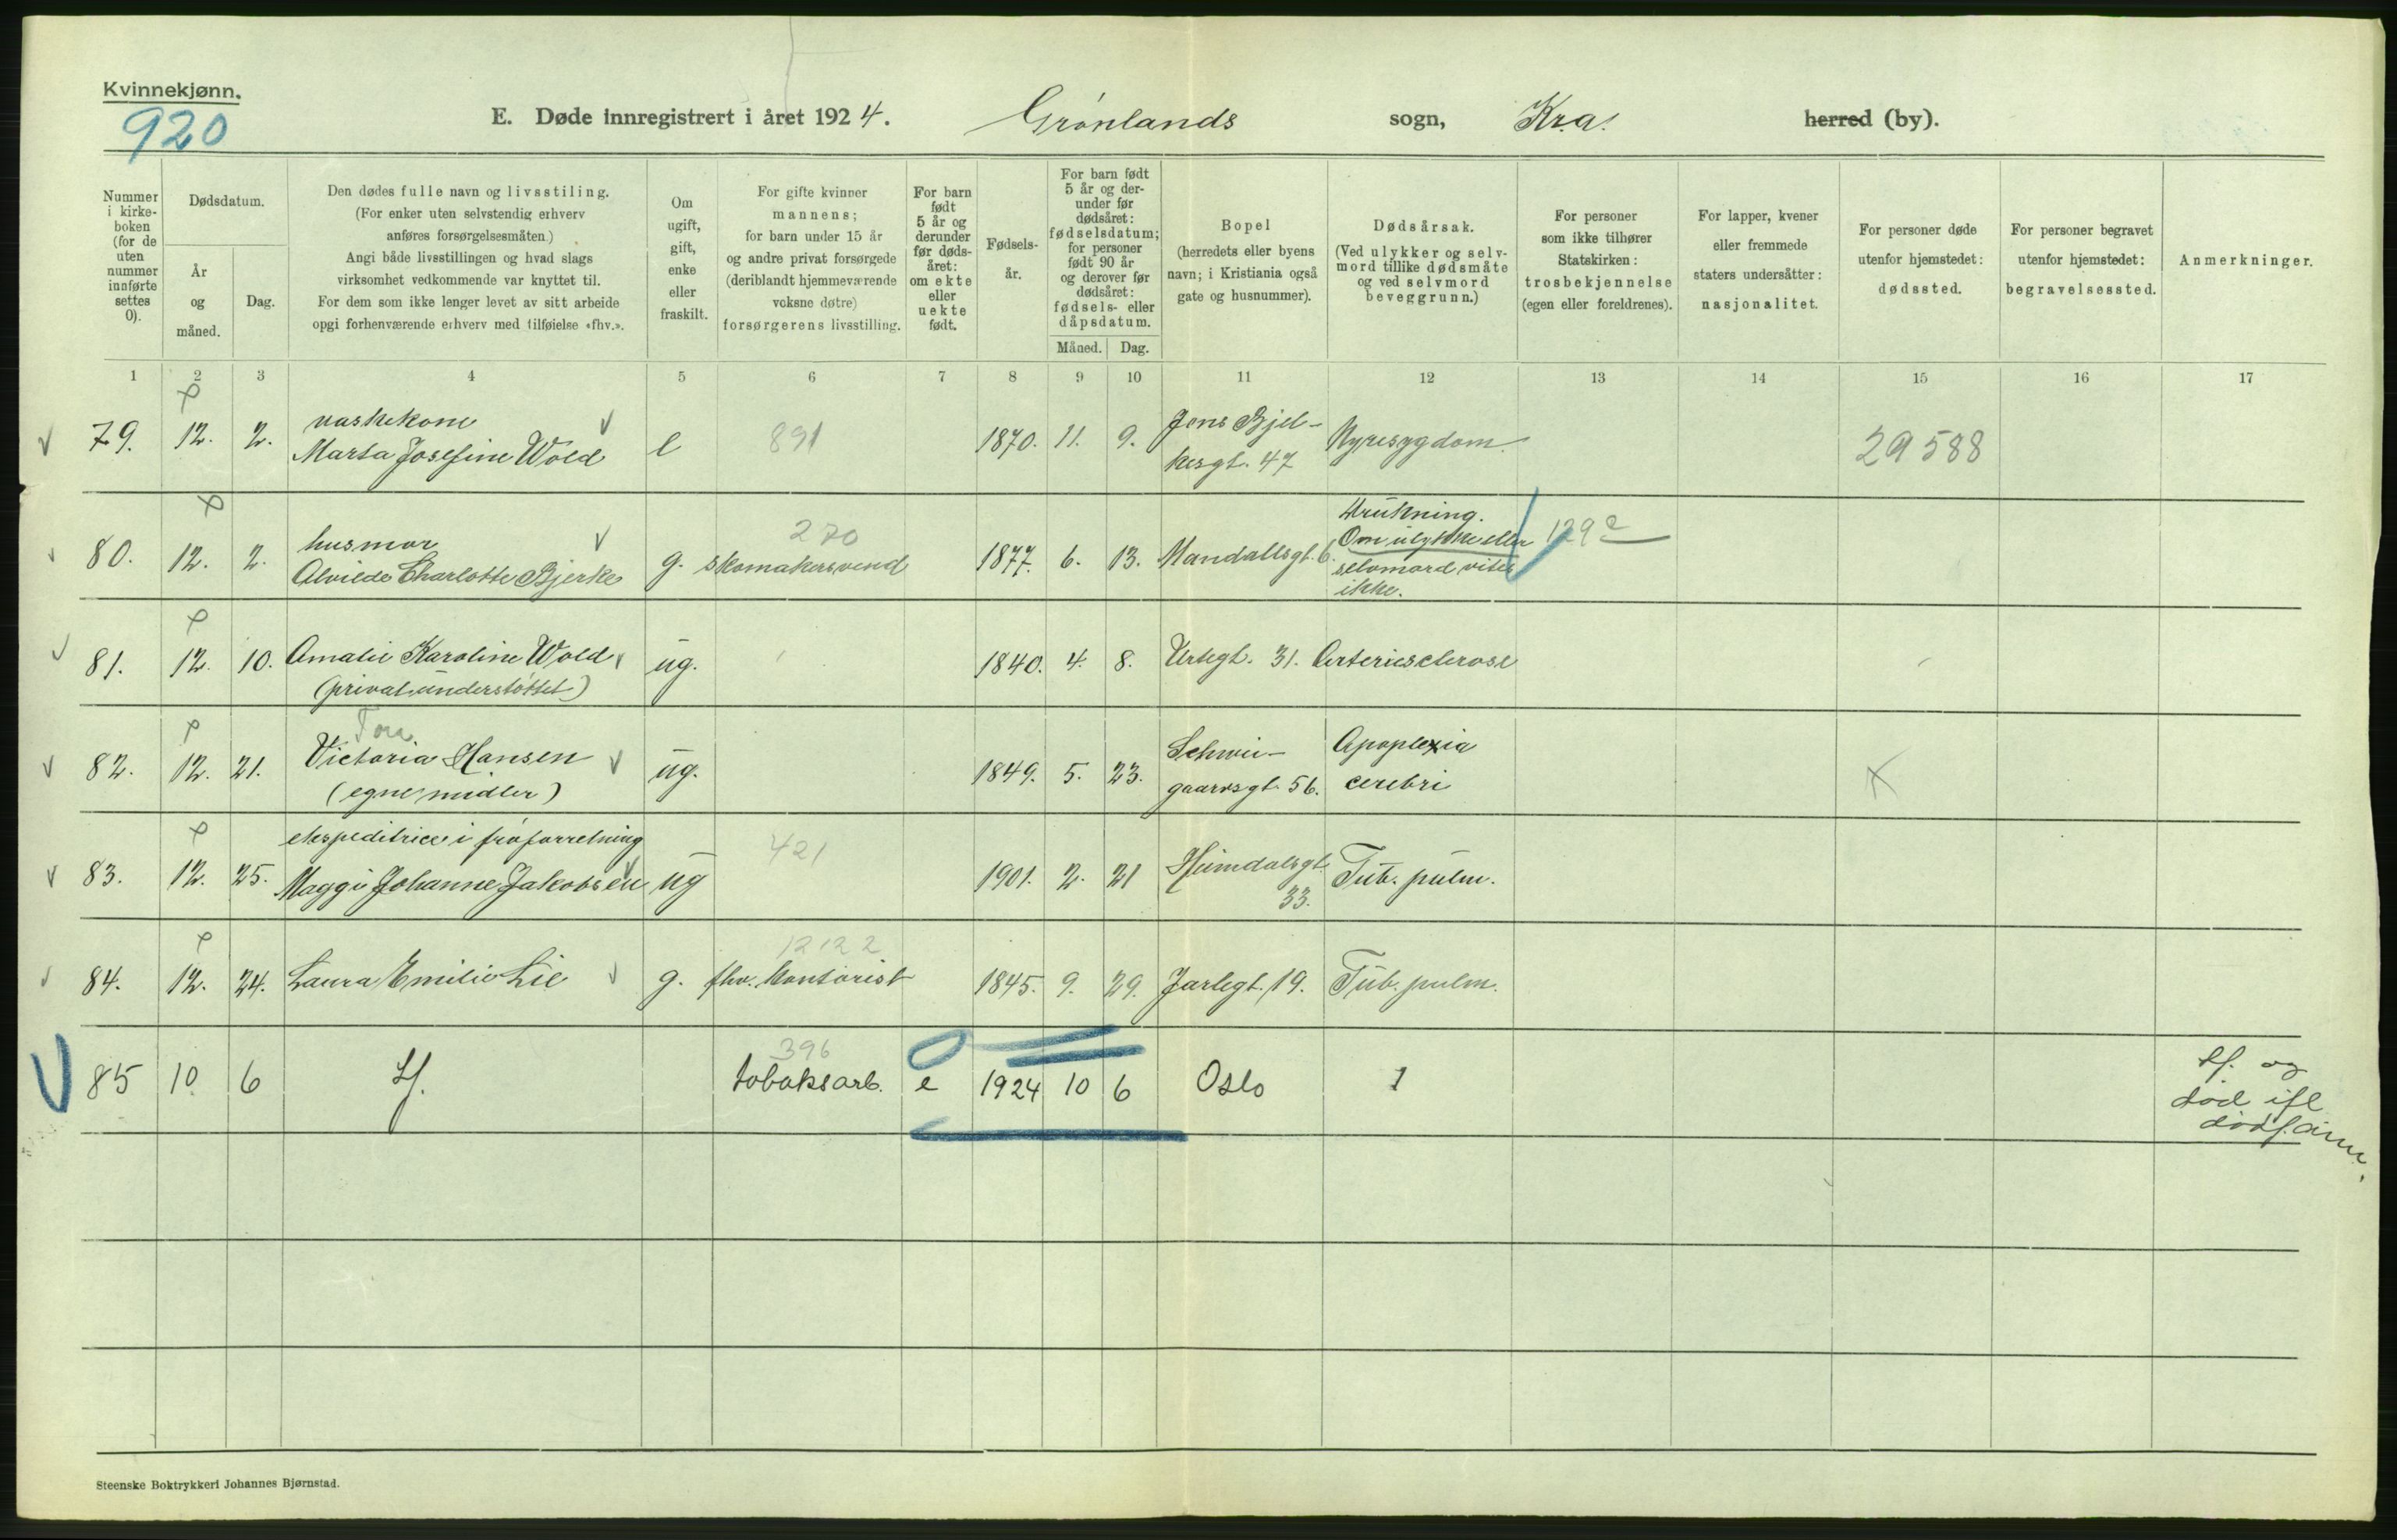 Kvinnekjønn.
920
E. Døde innregistrert i året 1924. Grønlands sogn, Kra. herred (by).
Nummer i kirke- boken (for de uten nummer innførte settes 0).
Dødsdatum.
År og måned.
Dag.
Den dødes fulle navn og livsstiling.
(For enker uten selvstendig erhverv
anføres forsørgelsesmåten.)
Angi både livsstillingen og hvad slags
virksomhet vedkommende var knyttet til.
For dem som ikke lenger levet av sitt arbeide
opgi forhenværende erhverv med tilføielse «fhv.».
Om ugift, gift, enke eller fraskilt.
For gifte kvinner
mannens;
for barn under 15 år
og andre privat forsørgede
(deriblandt hjemmeværende
voksne døtre)
forsørgerens livsstilling.
For barn født 5 år og derunder før døds- året: om ekte eller uekte født.
Fødsels- år.
For barn født 5 år og der- under før dødsåret: fødselsdatum; for personer født 90 år og derover før dødsåret: fødsels- eller dåpsdatum.
Måned. Dag.
Bopel
(herredets eller byens
navn; i Kristiania også
gate og husnummer).
Dødsårsak.
(Ved ulykker og selv-
mord tillike dødsmåte
og ved selvmord
beveggrunn.)
For personer
som ikke tilhører
Statskirken:
trosbekjennelse
(egen eller foreldrenes).
For lapper, kvener
eller fremmede
staters undersåtter:
nasjonalitet.
For personer døde
utenfor hjemstedet:
dødssted.
For personer begravet
utenfor hjemstedet:
begravelsessted.
Anmerkninger.
1 2 3 4 5 6 7 8 9 10 11 12 13 14 15 16 17
79. 12. 2. vaskekone
Marta Josefine Wold e 891 1870. 11. 9. Jens Bjel-
kesgt. 47 Nyresygdom. 29588
80. 12. 2. husmor
Alvilde Charlotte Bjerke g. 270
skomakersvend 1877. 6. 13. Mandallsgt. 6. Drukning.
Om ulykke eller
selvmord vites
ikke. 129
81. 12. 10. Amalie Karoline Wold
(privat understøttet) ug. 1840. 4. 8. Urtegt. 31. Arteriesclerose
82. 12. 21. Tora
Victoria Hansen
(egne midler) ug. 1849. 5. 23. Schwei-
gaarsgt. 56. Apoplexia
cerebri
83. 12. 25. ekspeditrice i frøforretning
Maggi Johanne Jakobsen ug 421 1901. 2. 21 Heimdalsgt.
33. Tub. pulm.
84. 12. 24. Laura Emilie Lie g. 12122
fhv. kontorist 1845. 9. 29. Jarlegt. 19. Tub. pulm.
85 10. 6 396
tobaksarb. e 1924 10 6 Oslo 1 og
død ifl.
Steenske Boktrykkeri Johannes Bjørnstad.